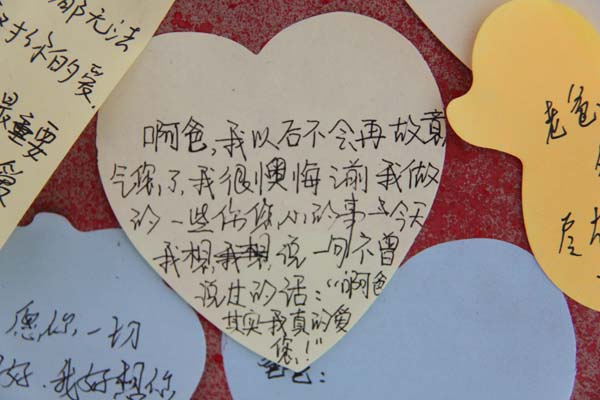 都无法
你的爱,
最重要
爱
啊爸,我以后不会再故意
气您了,我很懊悔之前我做
的一些伤您心的事。今天
我想,我想,说一句不曾
说过的话:“啊爸
其实我真的爱
您!”
老爸
愿你一切
好.我好想你
爸爸: